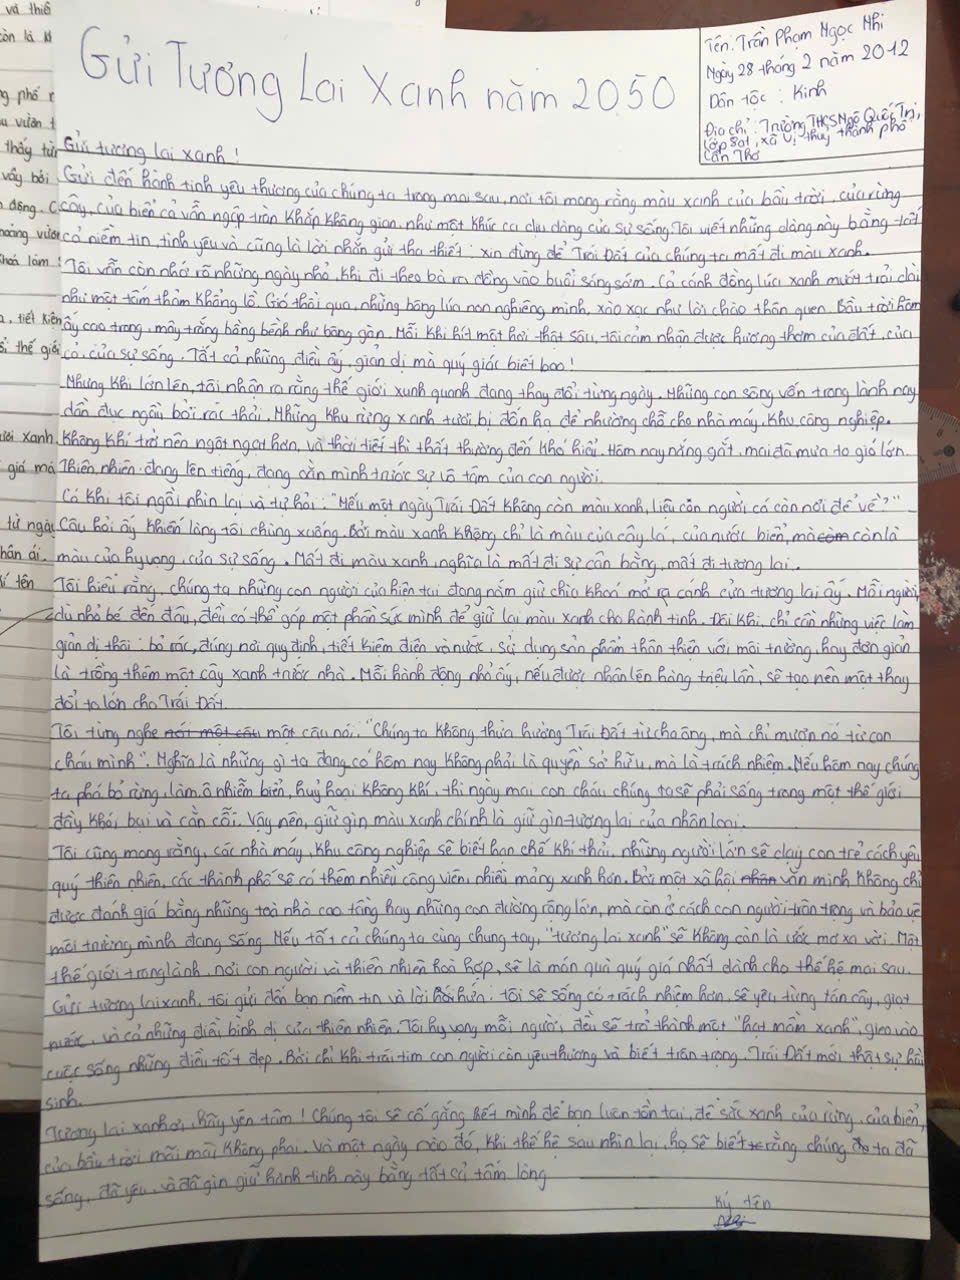 Gửi Tương Lai Xanh năm 2050
Tên: Trần Phạm Ngọc Nhi
Ngày 28 tháng 2 năm 2012
Dân tộc: Kinh
Địa chỉ: Trường THCS Ngô Quốc Trị,
lớp 8a1, xã Vị Thuỷ thành phố
Cần Thơ
Gửi tương lai xanh!
Gửi đến hành tinh yêu thương của chúng ta trong mai sau, nơi tôi mong rằng màu xanh của bầu trời, của rừng
cây, của biển cả vẫn ngập tràn khắp không gian, như một khúc ca dịu dàng của sự sống. Tôi viết những dòng này bằng tất
cả niềm tin, tình yêu và cũng là lời nhắn gửi tha thiết: xin đừng để Trái Đất của chúng ta mất đi màu xanh.
Tôi vẫn còn nhớ rõ những ngày nhỏ, khi đi theo bà ra đồng vào buổi sáng sớm. Cả cánh đồng lúa xanh mướt trải dài
như một tấm thảm khổng lồ. Gió thổi qua, những bông lúa non nghiêng mình, xào xạc như lời chào thân quen. Bầu trời hôm
ấy cao trong, mây trắng bồng bềnh như bông gòn. Mỗi khi hít một hơi thật sâu, tôi cảm nhận được hương thơm của đất, của
cỏ, của sự sống. Tất cả những điều ấy, giản dị mà quý giác biết bao!
Nhưng khi lớn lên, tôi nhận ra rằng thế giới xung quanh đang thay đổi từng ngày. Những con sông vốn trong lành nay
dần đục ngầu bởi rác thải. Những khu rừng xanh tươi bị đốn hạ để nhường chỗ cho nhà máy, khu công nghiệp.
Không khí trở nên ngột ngạt hơn, và thời tiết thì thất thường đến khó hiểu. Hôm nay nắng gắt, mai đã mưa to gió lớn.
Thiên nhiên đang lên tiếng, đang cằn mình trước sự vô tâm của con người.
Có khi tôi ngồi nhìn lại và tự hỏi: "Nếu một ngày Trái Đất không còn màu xanh, liệu con người có còn nơi để về?"
Câu hỏi ấy khiến lòng tôi chùng xuống. Bởi màu xanh không chỉ là màu của cây lá, của nước biển, mà còn là
màu của hy vọng, của sự sống. Mất đi màu xanh, nghĩa là mất đi sự cân bằng, mất đi tương lai.
Tôi hiểu rằng, chúng ta những con người của hiện tại đang nắm giữ chìa khoá mở ra cánh cửa tương lai ấy. Mỗi người,
dù nhỏ bé đến đâu, đều có thể góp một phần sức mình để giữ lại màu xanh cho hành tinh. Đôi khi, chỉ cần những việc làm
giản dị thôi: bỏ rác, đúng nơi quy định, tiết kiệm điện và nước, sử dụng sản phẩm thân thiện với môi trường, hay đơn giản
là trồng thêm một cây xanh trước nhà. Mỗi hành động nhỏ ấy, nếu được nhân lên hàng triệu lần, sẽ tạo nên một thay
đổi to lớn cho Trái Đất.
Tôi từng nghe một câu nói: "Chúng ta không thừa hưởng Trái Đất từ cha ông, mà chỉ mượn nó từ con
cháu mình". Nghĩa là những gì ta đang có hôm nay không phải là quyền sở hữu, mà là trách nhiệm. Nếu hôm nay chúng
ta phá bỏ rừng, làm ô nhiễm biển, huỷ hoại không khí, thì ngày mai con cháu chúng ta sẽ phải sống trong một thế giới
đầy khói bụi và cằn cỗi. Vậy nên, giữ gìn màu xanh chính là giữ gìn tương lai của nhân loại.
Tôi cũng mong rằng, các nhà máy, khu công nghiệp sẽ biết hạn chế khí thải, những người lớn sẽ dạy con trẻ cách yêu
quý thiên nhiên, các thành phố sẽ có thêm nhiều công viên, nhiều mảng xanh hơn. Bởi một xã hội văn minh không chỉ
được đánh giá bằng những toà nhà cao tầng hay những con đường rộng lớn, mà còn ở cách con người trân trọng và bảo vệ
môi trường mình đang sống. Nếu tất cả chúng ta cùng chung tay, "tương lai xanh" sẽ không còn là ước mơ xa vời. Một
thế giới trong lành, nơi con người và thiên nhiên hoà hợp, sẽ là món quà quý giá nhất dành cho thế hệ mai sau.
Gửi tương lai xanh, tôi gửi đến bạn niềm tin và lời hứa: tôi sẽ sống có trách nhiệm hơn, sẽ yêu từng tán cây, giọt
nước, và cả những điều bình dị của thiên nhiên. Tôi hy vọng mỗi người, đều sẽ trở thành một "hạt mầm xanh", gieo vào
cuộc sống những điều tốt đẹp. Bởi chỉ khi trái tim con người còn yêu thương và biết trân trọng, Trái Đất mới thật sự hồi
sinh.
Tương lai xanh ơi, hãy yên tâm! Chúng tôi sẽ cố gắng hết mình để bạn luôn tồn tại, để sắc xanh của rừng, của biển,
của bầu trời mãi mãi không phai. Và một ngày nào đó, khi thế hệ sau nhìn lại, họ sẽ biết rằng chúng ta đã
sống, đã yêu, và đã gìn giữ hành tinh này bằng tất cả tấm lòng
Ký tên